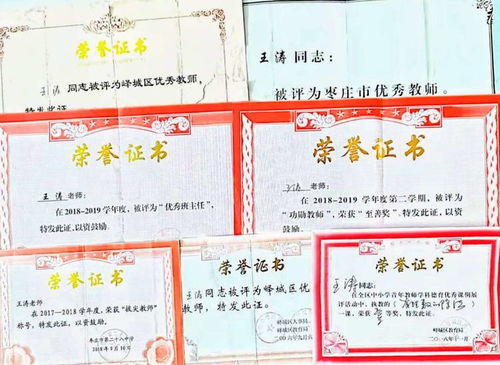 荣誉证书
王涛
同志被评为峄城区优秀教师,
特发此证
王涛同志:
被评为枣庄市优秀教师。
荣誉证书
王涛 老师:
在 2018-2019 学年度, 被评为“优秀班主任”,
特发此证, 以资鼓励。
荣誉证书
王涛 老师:
在 2018-2019 学年度第二学期, 被评为
“功勋教师”, 荣获“至善奖”, 特发此证, 以资
鼓励。
荣誉证书
王涛老师
在 2017-2018 学年度, 荣获“拔尖教师”
称号, 特发此证, 以资鼓励。
枣庄市第二十八中学
2018 年 9 月 10 日
荣誉证书
王涛同志被评为峄城区优秀
教师, 特发此证。
峄城区人事局
峄城区教育局
二〇〇六年九月
荣誉证书
王涛同志:
在全区中小学青年教师学科德育优秀课例展
评活动中, 执教的
一课, 荣获 等奖。特发此证, 以资鼓励。
峄城区教育局